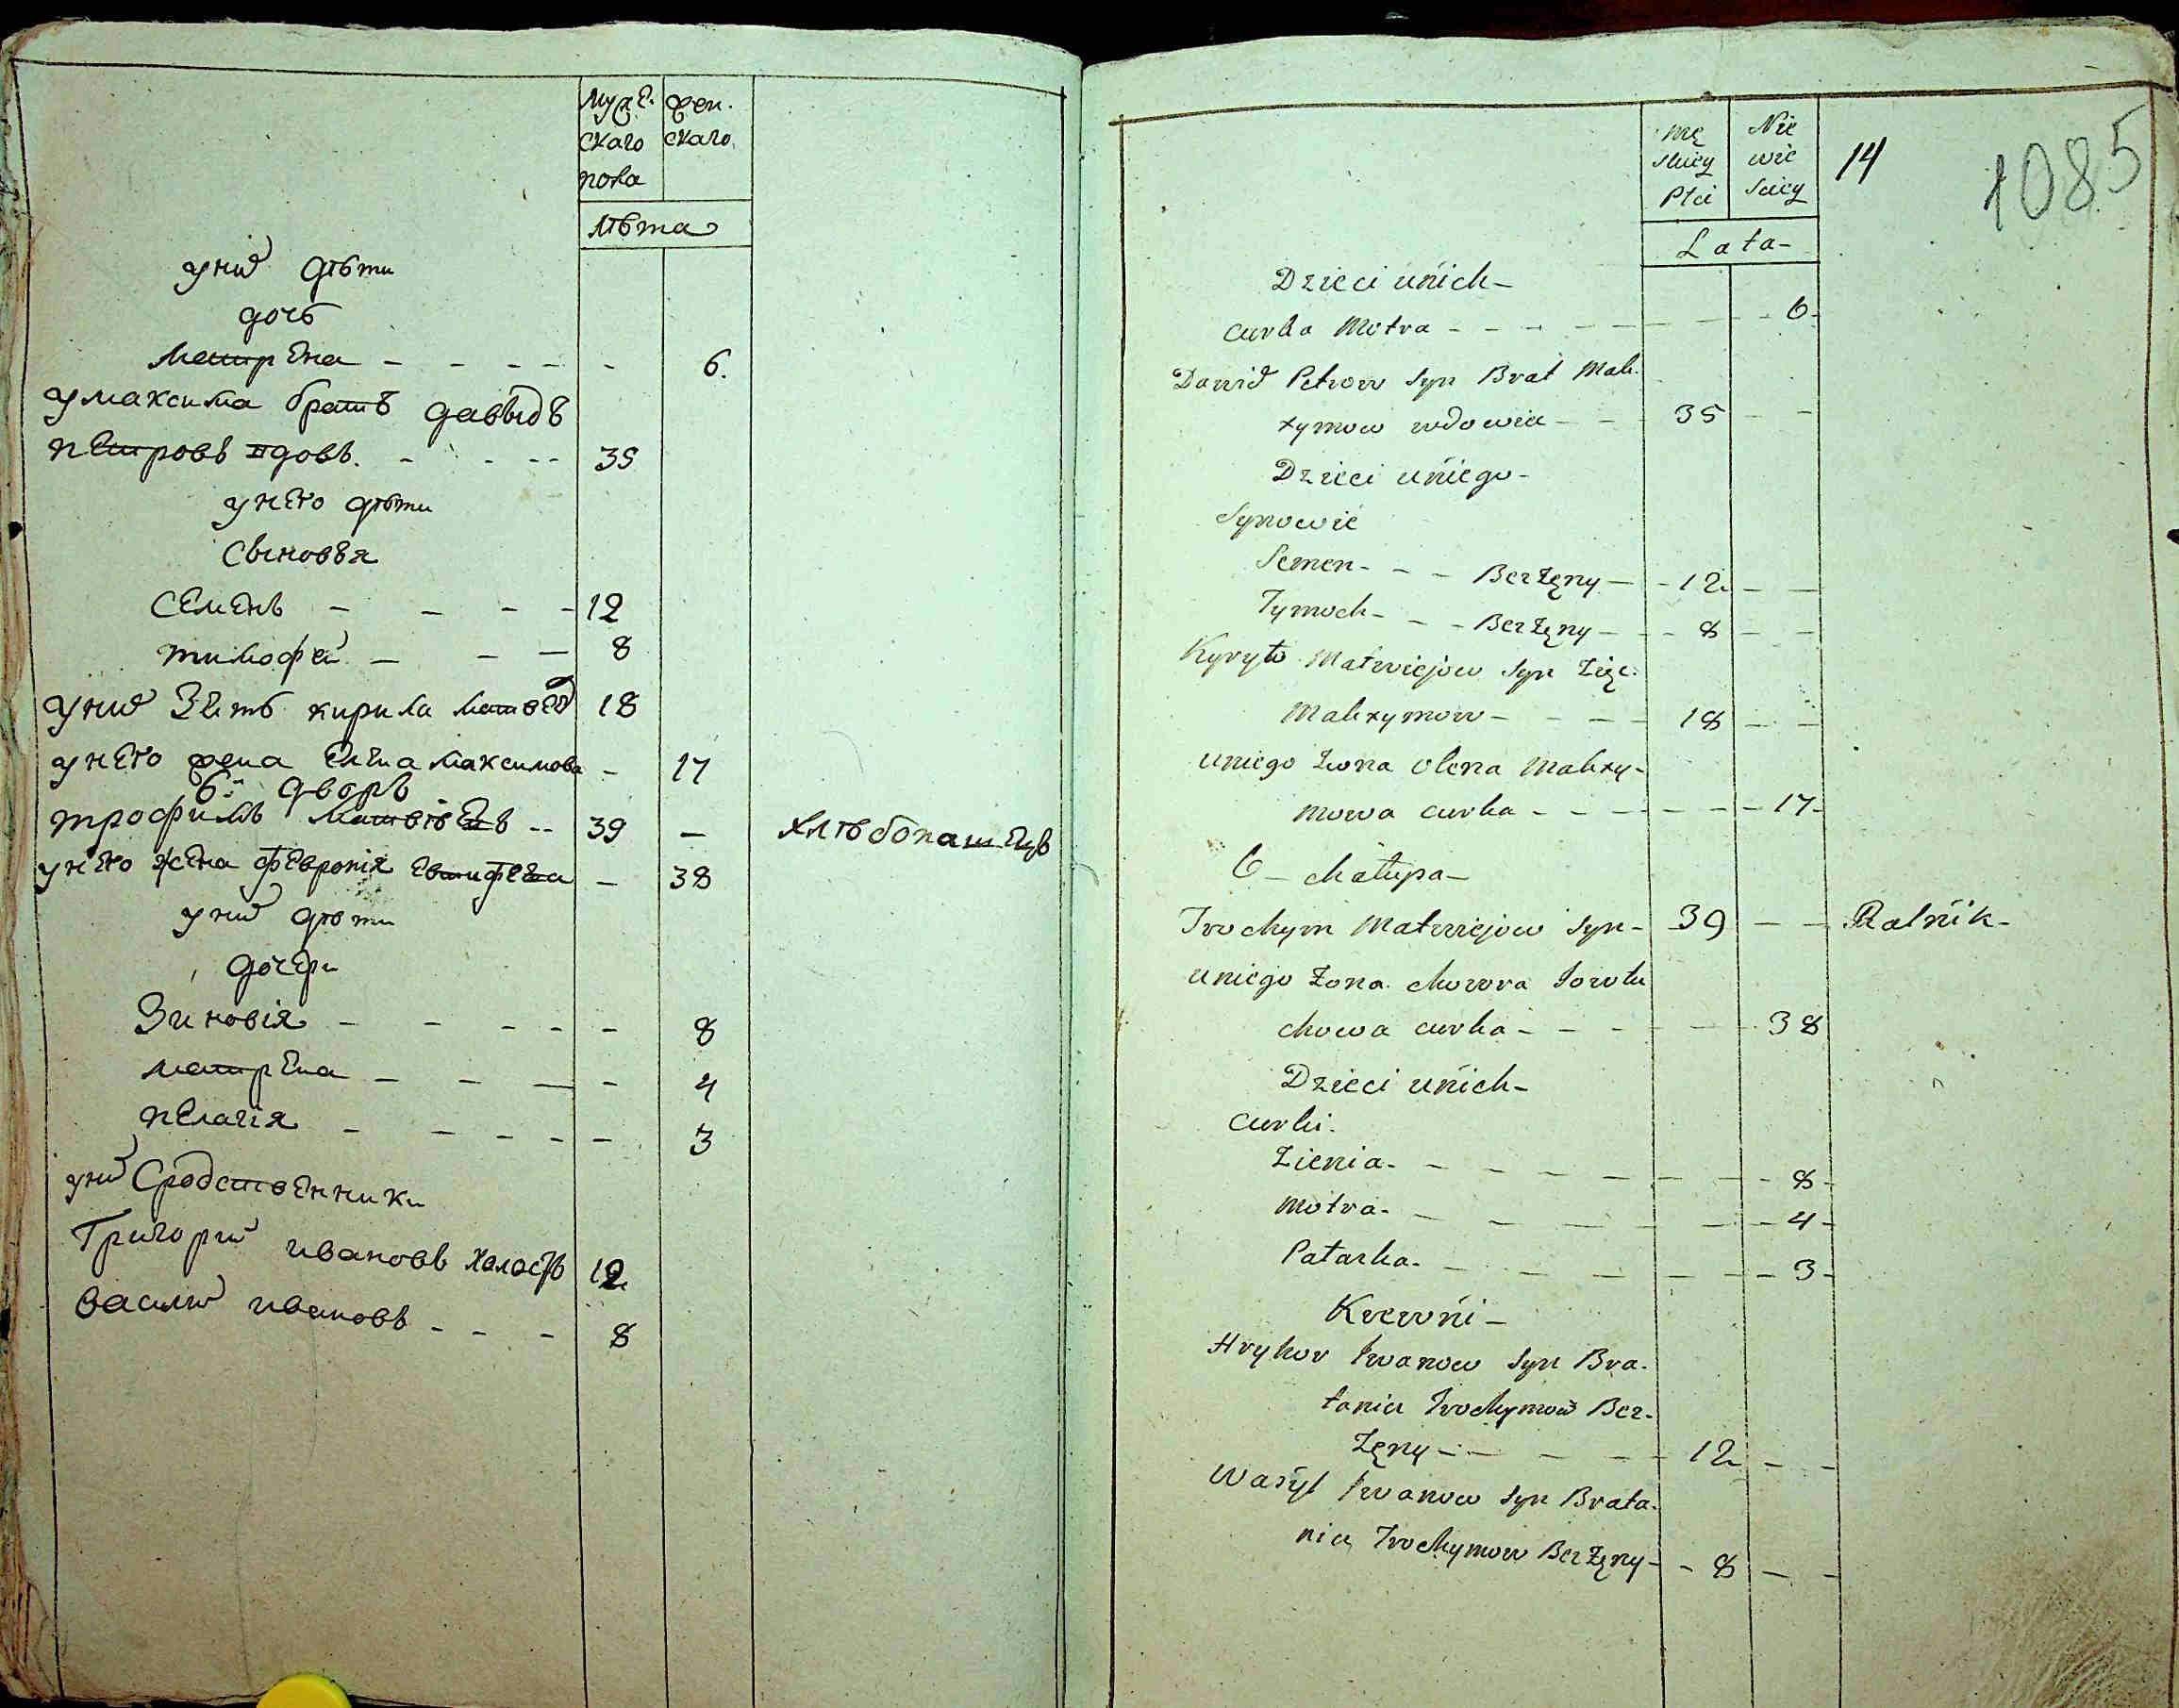 мужескаго пола
женскаго
лѣта
у них дѣти
дочь
матрена - - - - - 6.
у максима братъ давыдъ
петровъ вдовъ. - - - - 35
у него дѣти
сыновья
семенъ - - - - 12
тимофей - - - 8
у них зять кирила матвѣев 18
у него жена елена максимова - 17
6й дворъ
трофимъ матвѣевъ - - 39 - хлѣбопашецъ
у него жена февронія евтифеева - 38
у них дѣти
дочери
Зиновія - - - - - 8
матрена - - - - 4
пелагія - - - - - 3
у них сродственники
Григорий ивановъ холостъ 12
василий ивановъ - - - 8
Mę skiey Płci
Nie wie sciey
14
1085
Lata -
Dzieci unich -
curka Motra - - - - - - - 6 -
Dawid Petrow syn Brat Mak-
xymow wdowiec - - - 35 - -
Dzieci uniego -
Synowie
Semen - - - Bezżęny - - 12 - -
Tymoch - - - Bezżęny - - - 8 - -
Kyryło Matwiejow syn Zięc
Makxymow - - - - 18 - -
uniego Zona Olena Makxy-
mowa curka - - - - - - - 17 -
6 - Chałupa -
Trochym Matwiejow syn - 39 - - Ralnik -
uniego Zona Chowra
chowa curka - - - - - 38
Dzieci unich -
Curki.
Zienia - - - - - - - - 8 -
Motra - - - - - - - 4 -
Patarka - - - - - - - 3 -
Krewni -
Hryhor Iwanow syn Bra-
tanic Trochymow Bez-
żęny - - - - - 12 - -
Wasyl Iwanow syn Brata-
nic Trochymow Bezżęny - - 8 - -